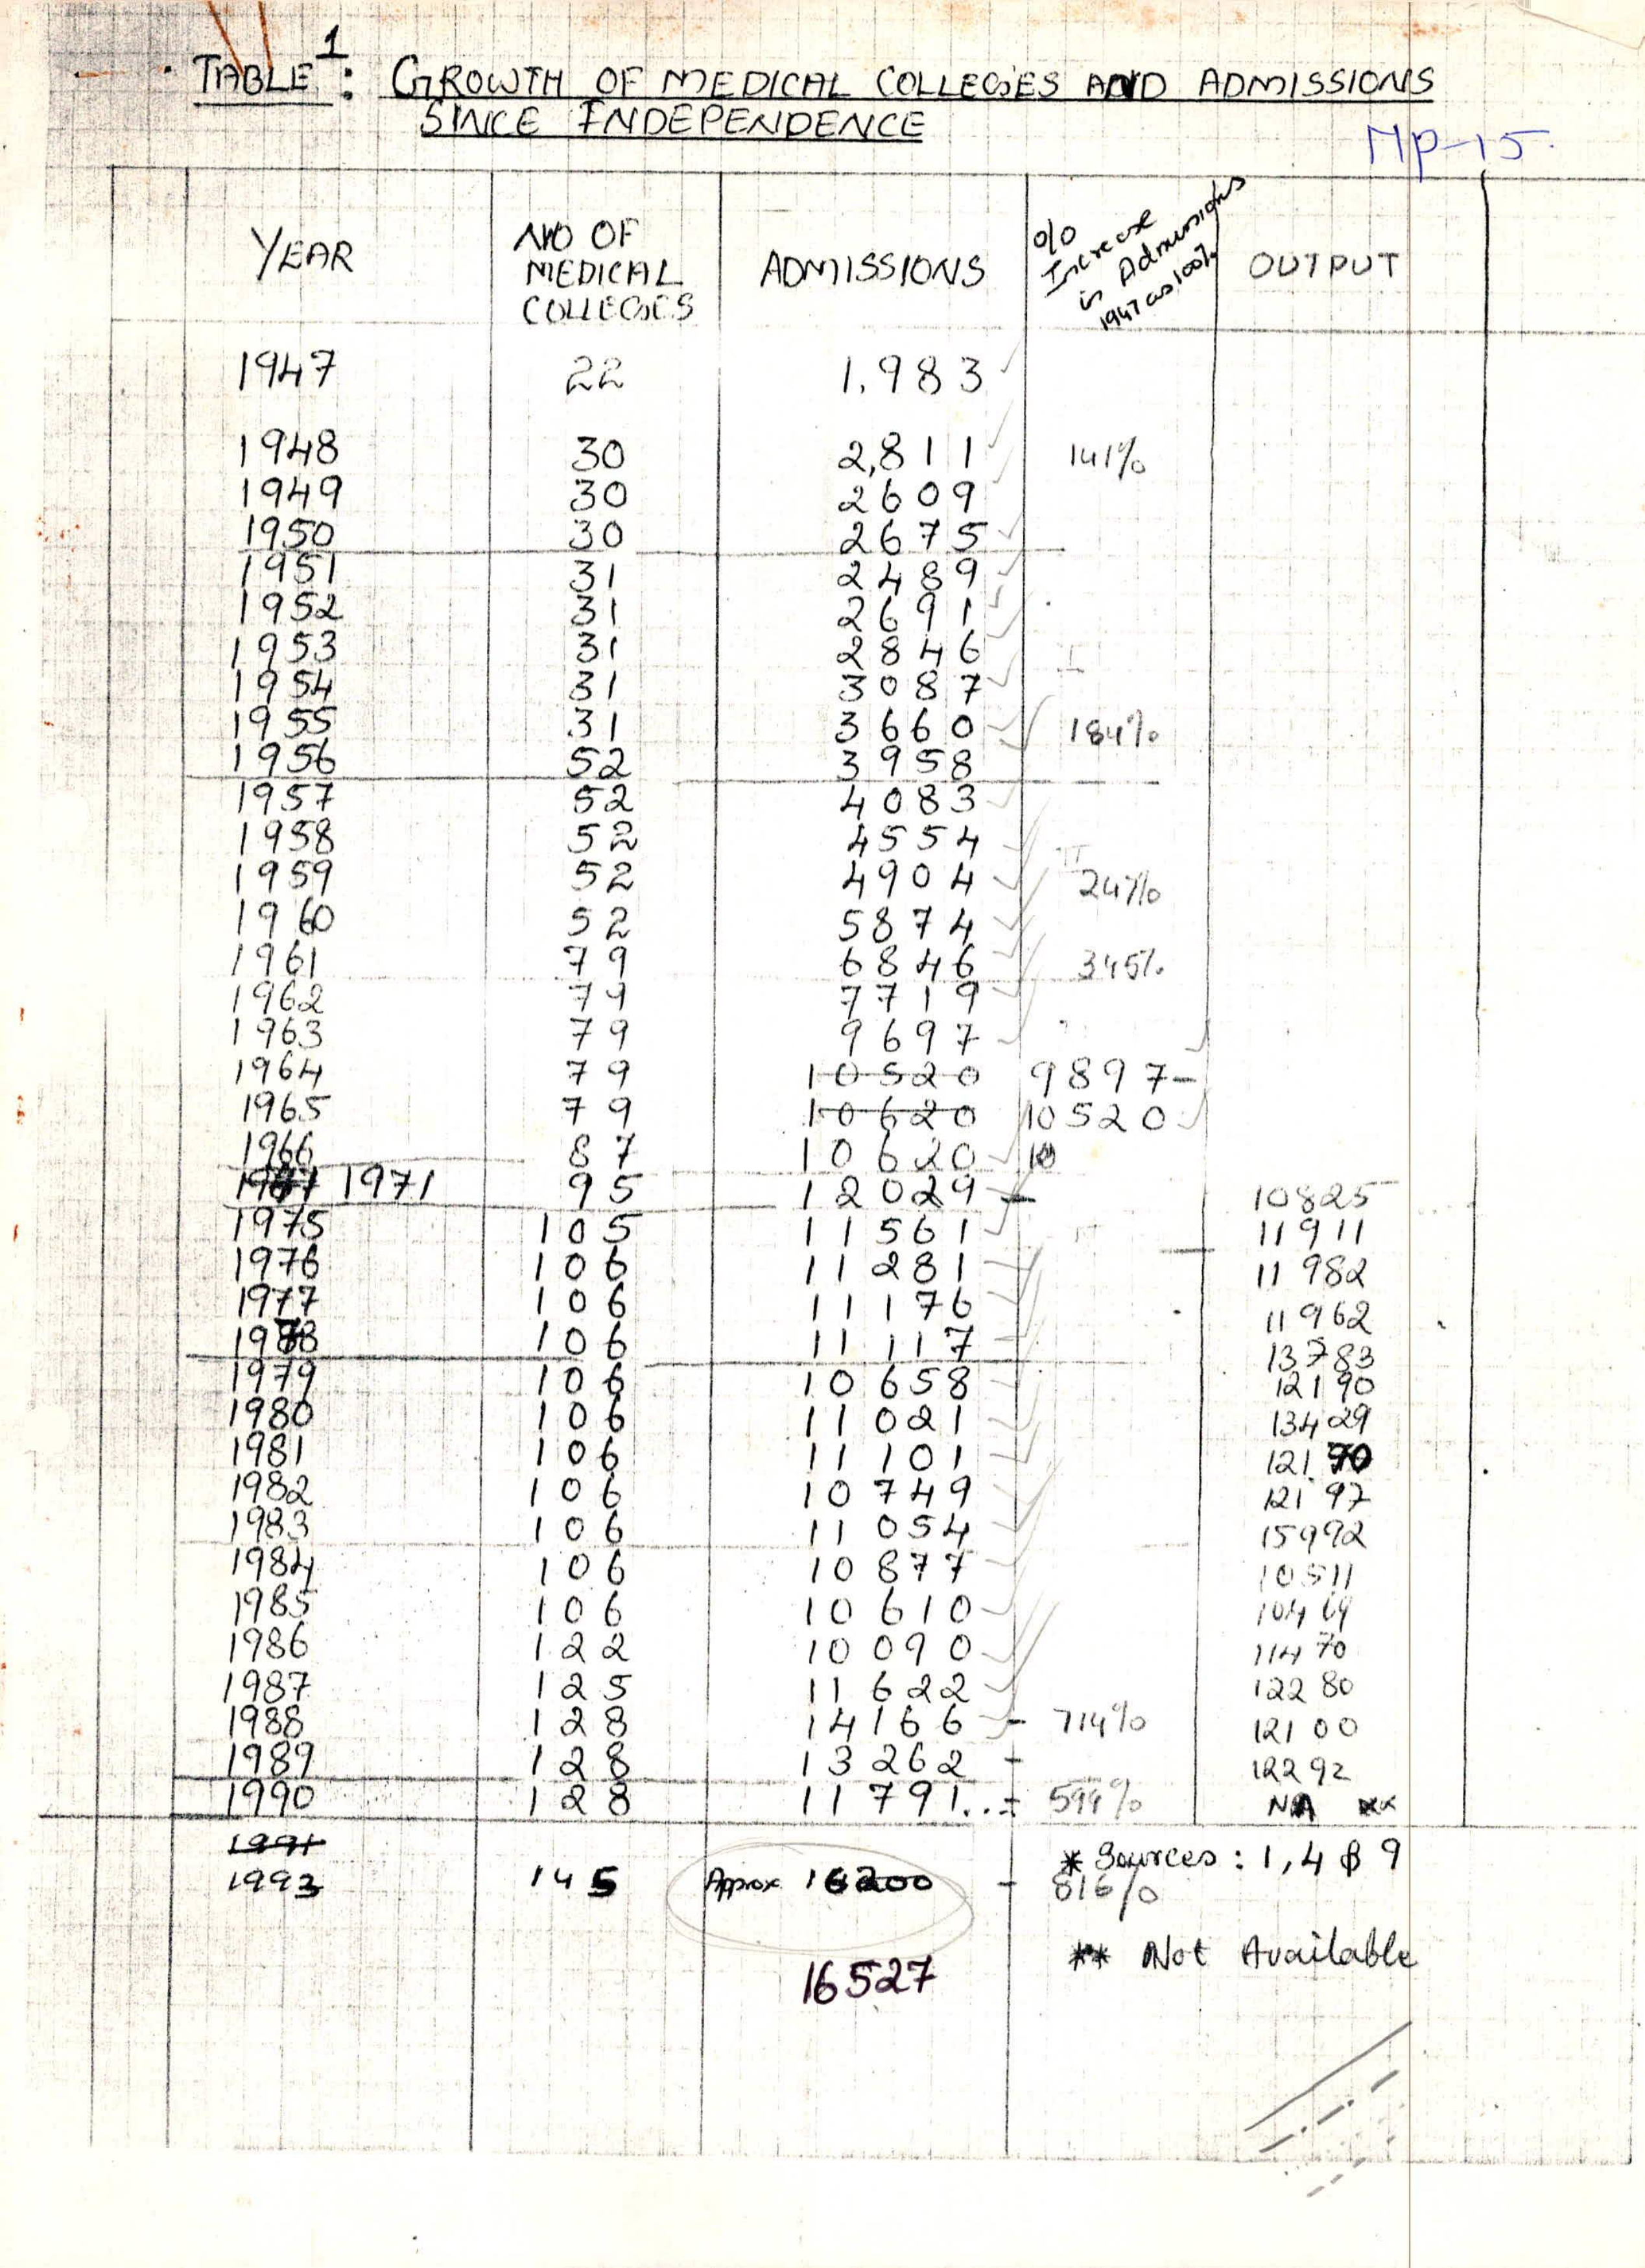 TABLE 1: GROWTH OF MEDICAL COLLEGES AND ADMISSIONS
SINCE INDEPENDENCE
MP-15.
YEAR NO OF MEDICAL COLLEGES ADMISSIONS % Increase in Admissions 1947 as 100% OUTPUT
1947 22 1,983
1948 30 2,811 141%
1949 30 2609
1950 30 2675
1951 31 2489
1952 31 2691
1953 31 2846 I
1954 31 3087
1955 31 3660 184%
1956 52 3958
1957 52 4083
1958 52 4554 II
1959 52 4904 247%
1960 52 5874
1961 79 6846 345%
1962 79 7719
1963 79 9697
1964 79 10520 9897-
1965 79 10620 10520
1966 87 10620 10
1971 95 12029 - 10825
1975 105 11561 11911
1976 106 11281 11982
1977 106 11176 11962
1978 106 11117 13783
1979 106 10658 12190
1980 106 11021 13429
1981 106 11101 12170
1982 106 10749 12197
1983 106 11054 15992
1984 106 10877 10511
1985 106 10610 10469
1986 122 10090 11470
1987 125 11622 12280
1988 128 14166 - 714% 12100
1989 128 13262 - 12292
1990 128 11791..- 594% NA **
1991
* Sources: 1, 4 & 9
1993 145 Approx 16200 - 816%
** Not Available
16527